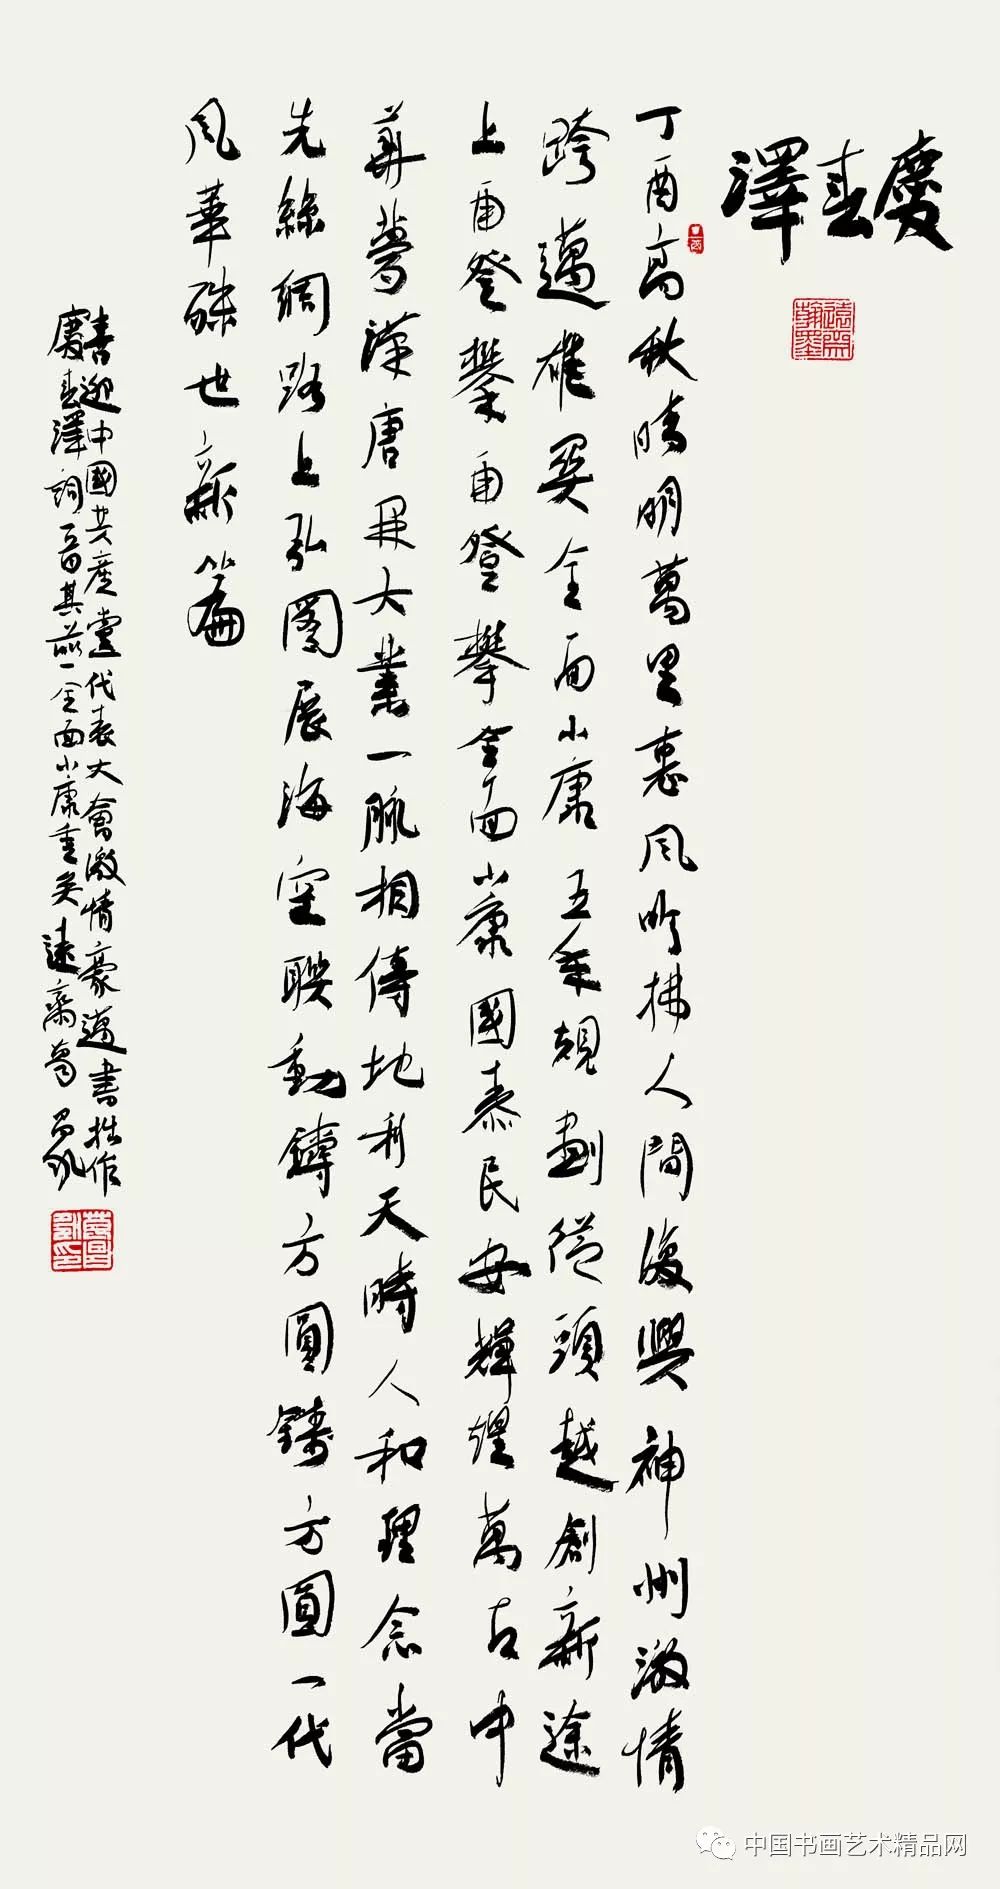 慶春澤
丁酉高秋晴明萬里惠風吟拂人間復興神州激情
跨邁雄関全面小康五年規劃從頭越創新途
上再登攀再登攀全面小康國泰民安輝煌萬古中
華夢漢唐開大業一脉相傳地利天時人和理念當
先絲綢路上弘圖展海空聯動鑄方圓鑄方圓一代
風華殊世新篇
喜迎中國共産黨代表大會激情豪邁書拙作
慶春澤詞 其 一全面小康重 遠齋
遠齋翰墨
中国书画艺术精品网